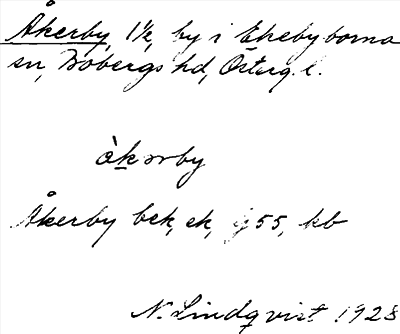 Åkerby, 1 1/2, by i Ekebyborna
sn, Bobergs hd, Österg. l.
åkərby
Åkerby bek, ek, 55, kb
N. Lindqvist 1928